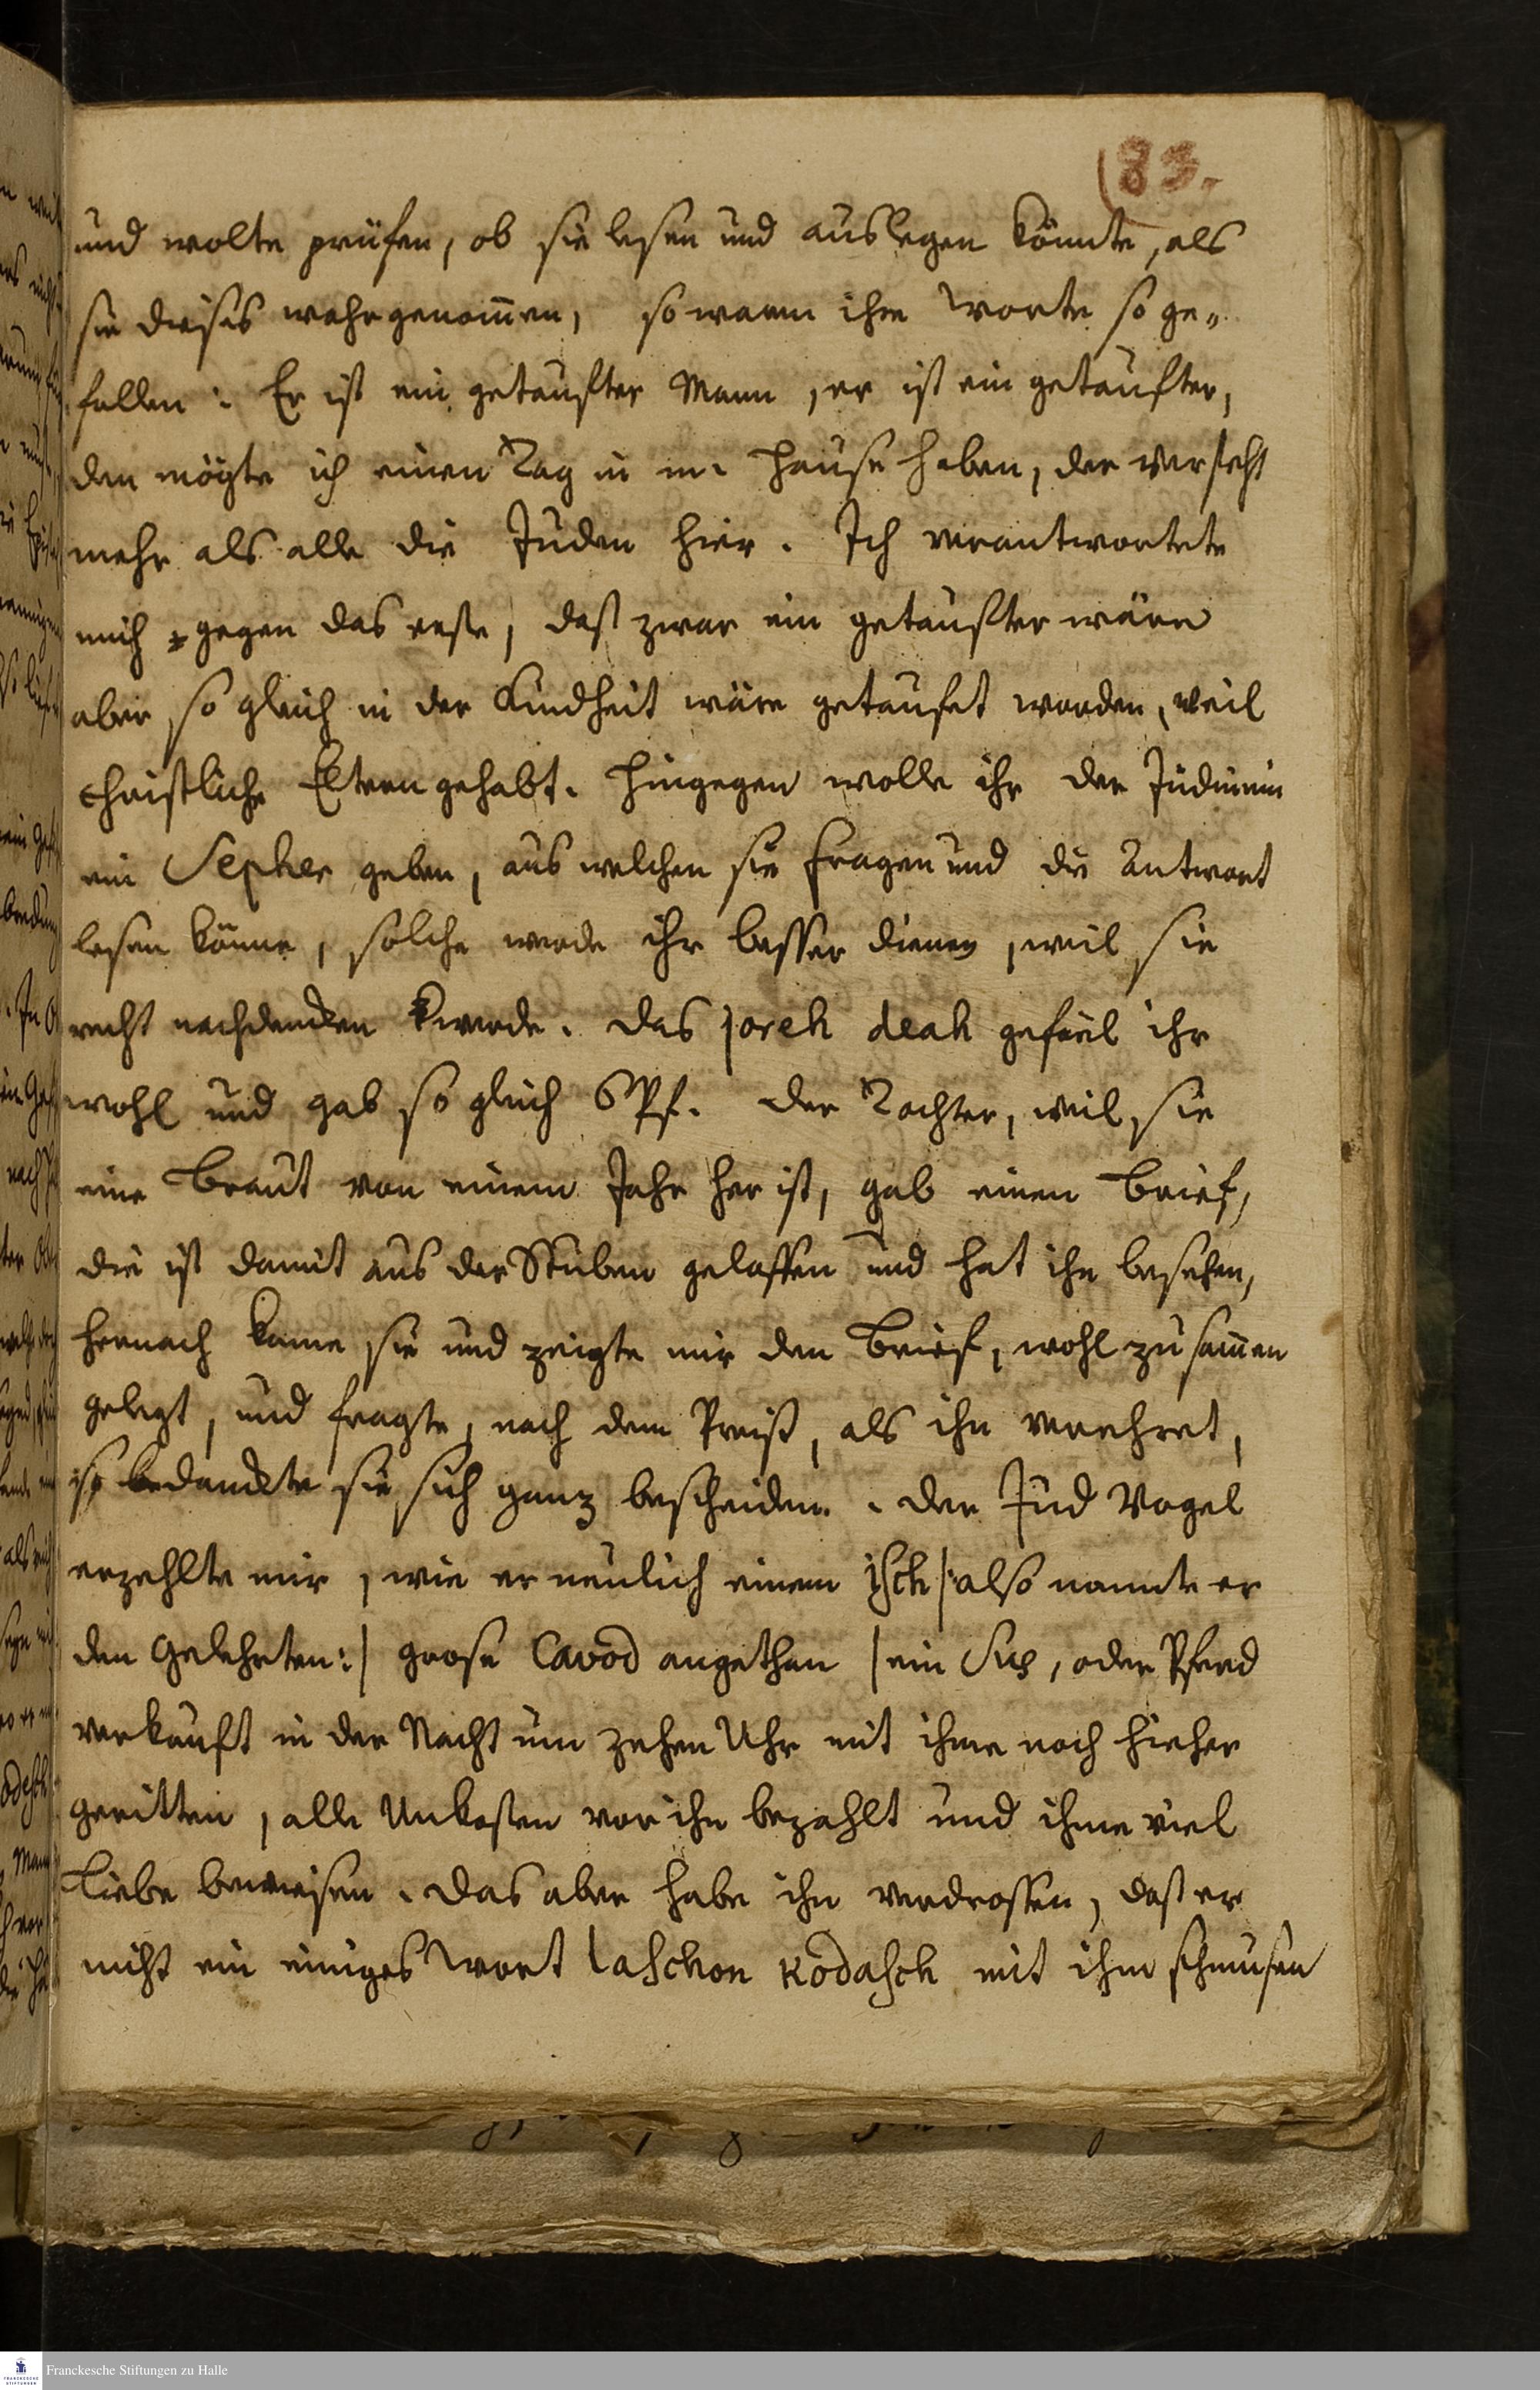 (83.
und wolte prüfen, ob sie lesen und auslegen könnte, als
sie dieses wahrgenommen, so waren ihre Worte so ge-
fallen: Er ist ein getaufter Mann, er ist ein getaufter,
den mögte ich einen Tag in m. Hause haben, der versteht
mehr als alle die Juden hier. Ich verantwortete
mich gegen das erste, daß zwar ein getaufter wäre
aber so gleich in der Kindheit wäre getaufet worden, weil
christliche Eltern gehabt. Hingegen wolle ihr der Jüdinnin
ein Sepher geben, aus welchen sie fragen und die Antwort
lesen könne, solche werde ihr besser dienen, weil sie
recht nachdencken werde. Das joreh deah gefiel ihr
wohl und gab so gleich 6 Pf. Der Tochter, weil sie
eine Braut von einem Jahr her ist, gab einen Brief,
die ist damit aus der Stuben geloffen und hat ihn besehen,
hernach kame sie und zeigte mir den Brief, wohl zusammen
gelegt, und fragte, nach dem Preiß, als ihn verehret,
so bedanckte sie sich ganz bescheiden. Der Jud Vogel
erzehlte mir, wie er neulich einem isch |: also nannte er
den Gelehrten :| grose Cavod angethan | ein Sus, oder Pferd
verkauft in der Nacht um zehen Uhr mit ihme noch hieher
geritten, alle Unkosten vor ihn bezahlt und ihme viel
Liebe bewiesen. Das aber habe ihn verdrossen, daß er
nicht ein einiges Wort laschon kodasch mit ihm schmusen
Franckesche Stiftungen zu Halle